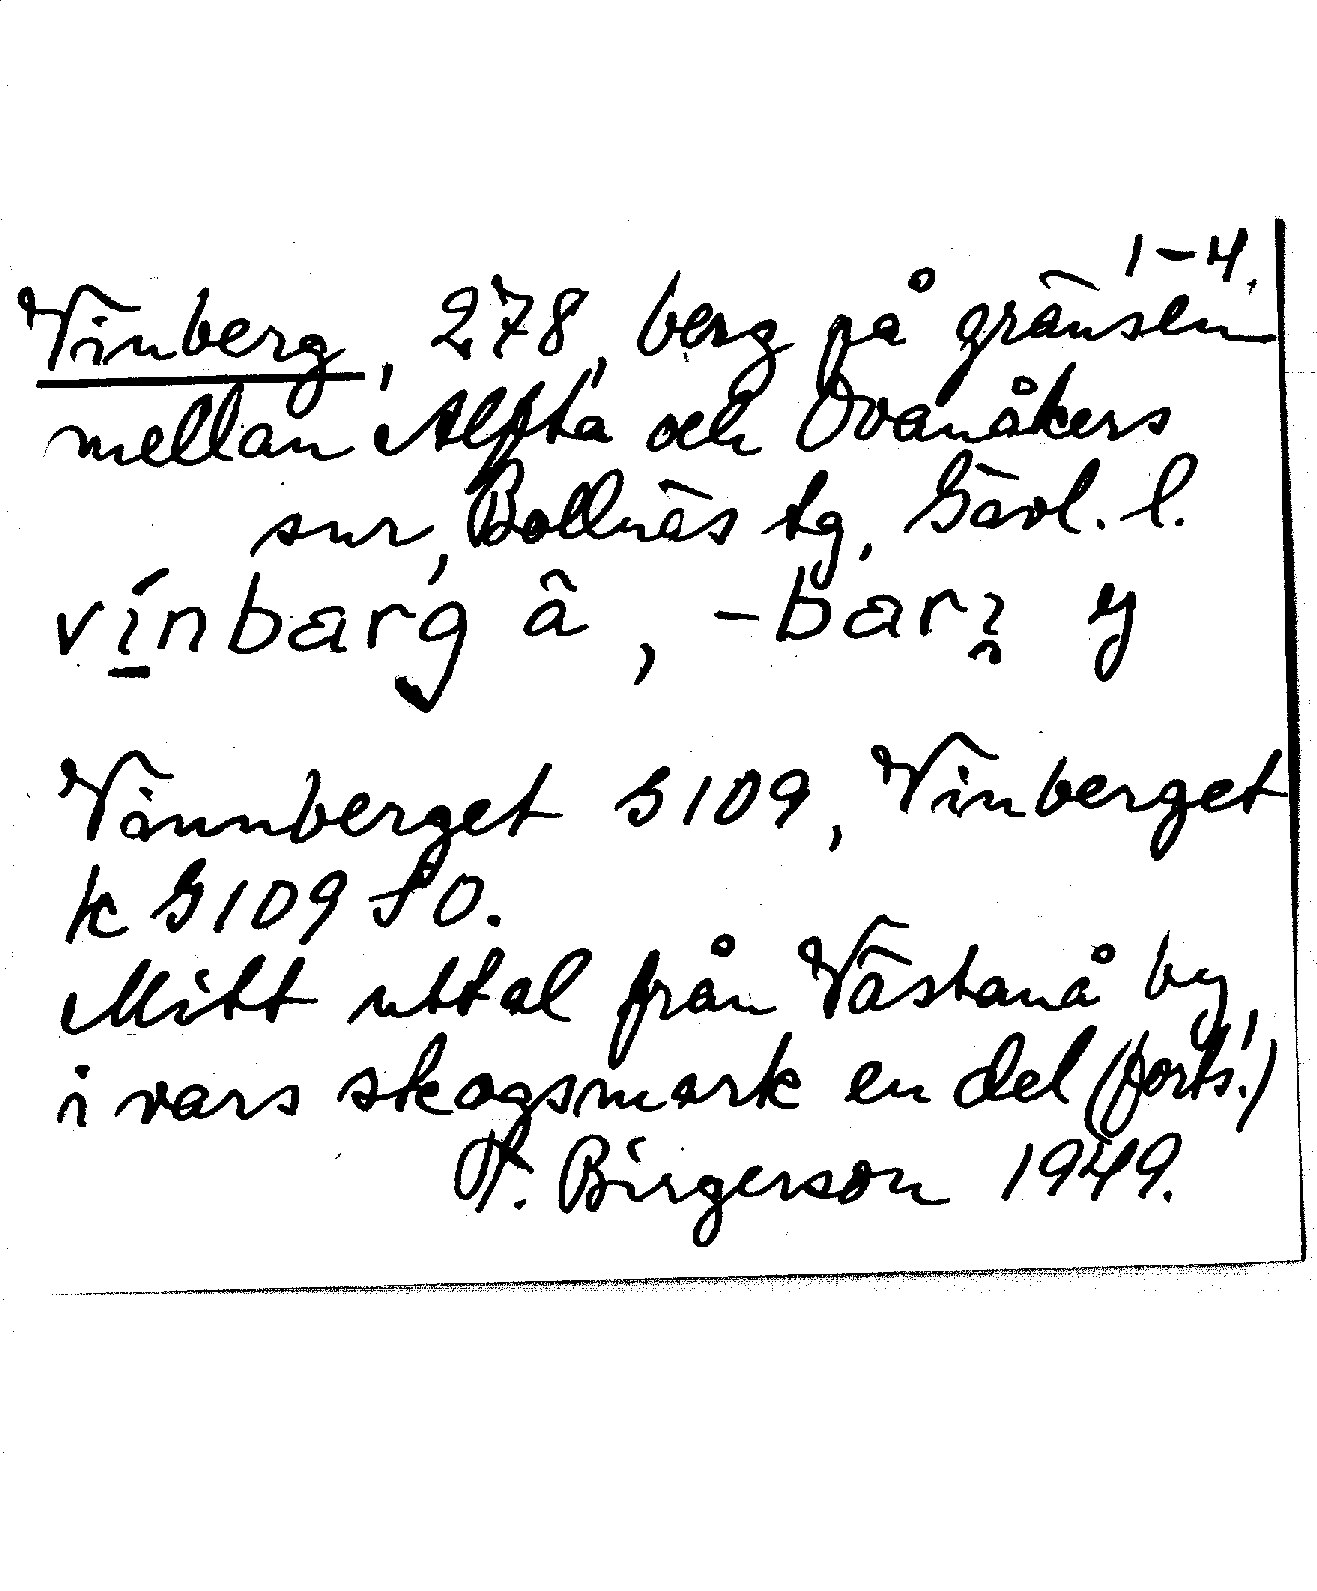 1-4.
Vinberg, 278, berg på gränsen
mellan Alfta och Ovanåkers
snr, Bollnäs tg, Gävl. l.
vínbarg â, -bar y
Vinnberget G109, Vinberget
k G109 SO.
Mitt uttal från Västanå by,
i vars skogsmark en del (forts.!)
Birgerson 1949.